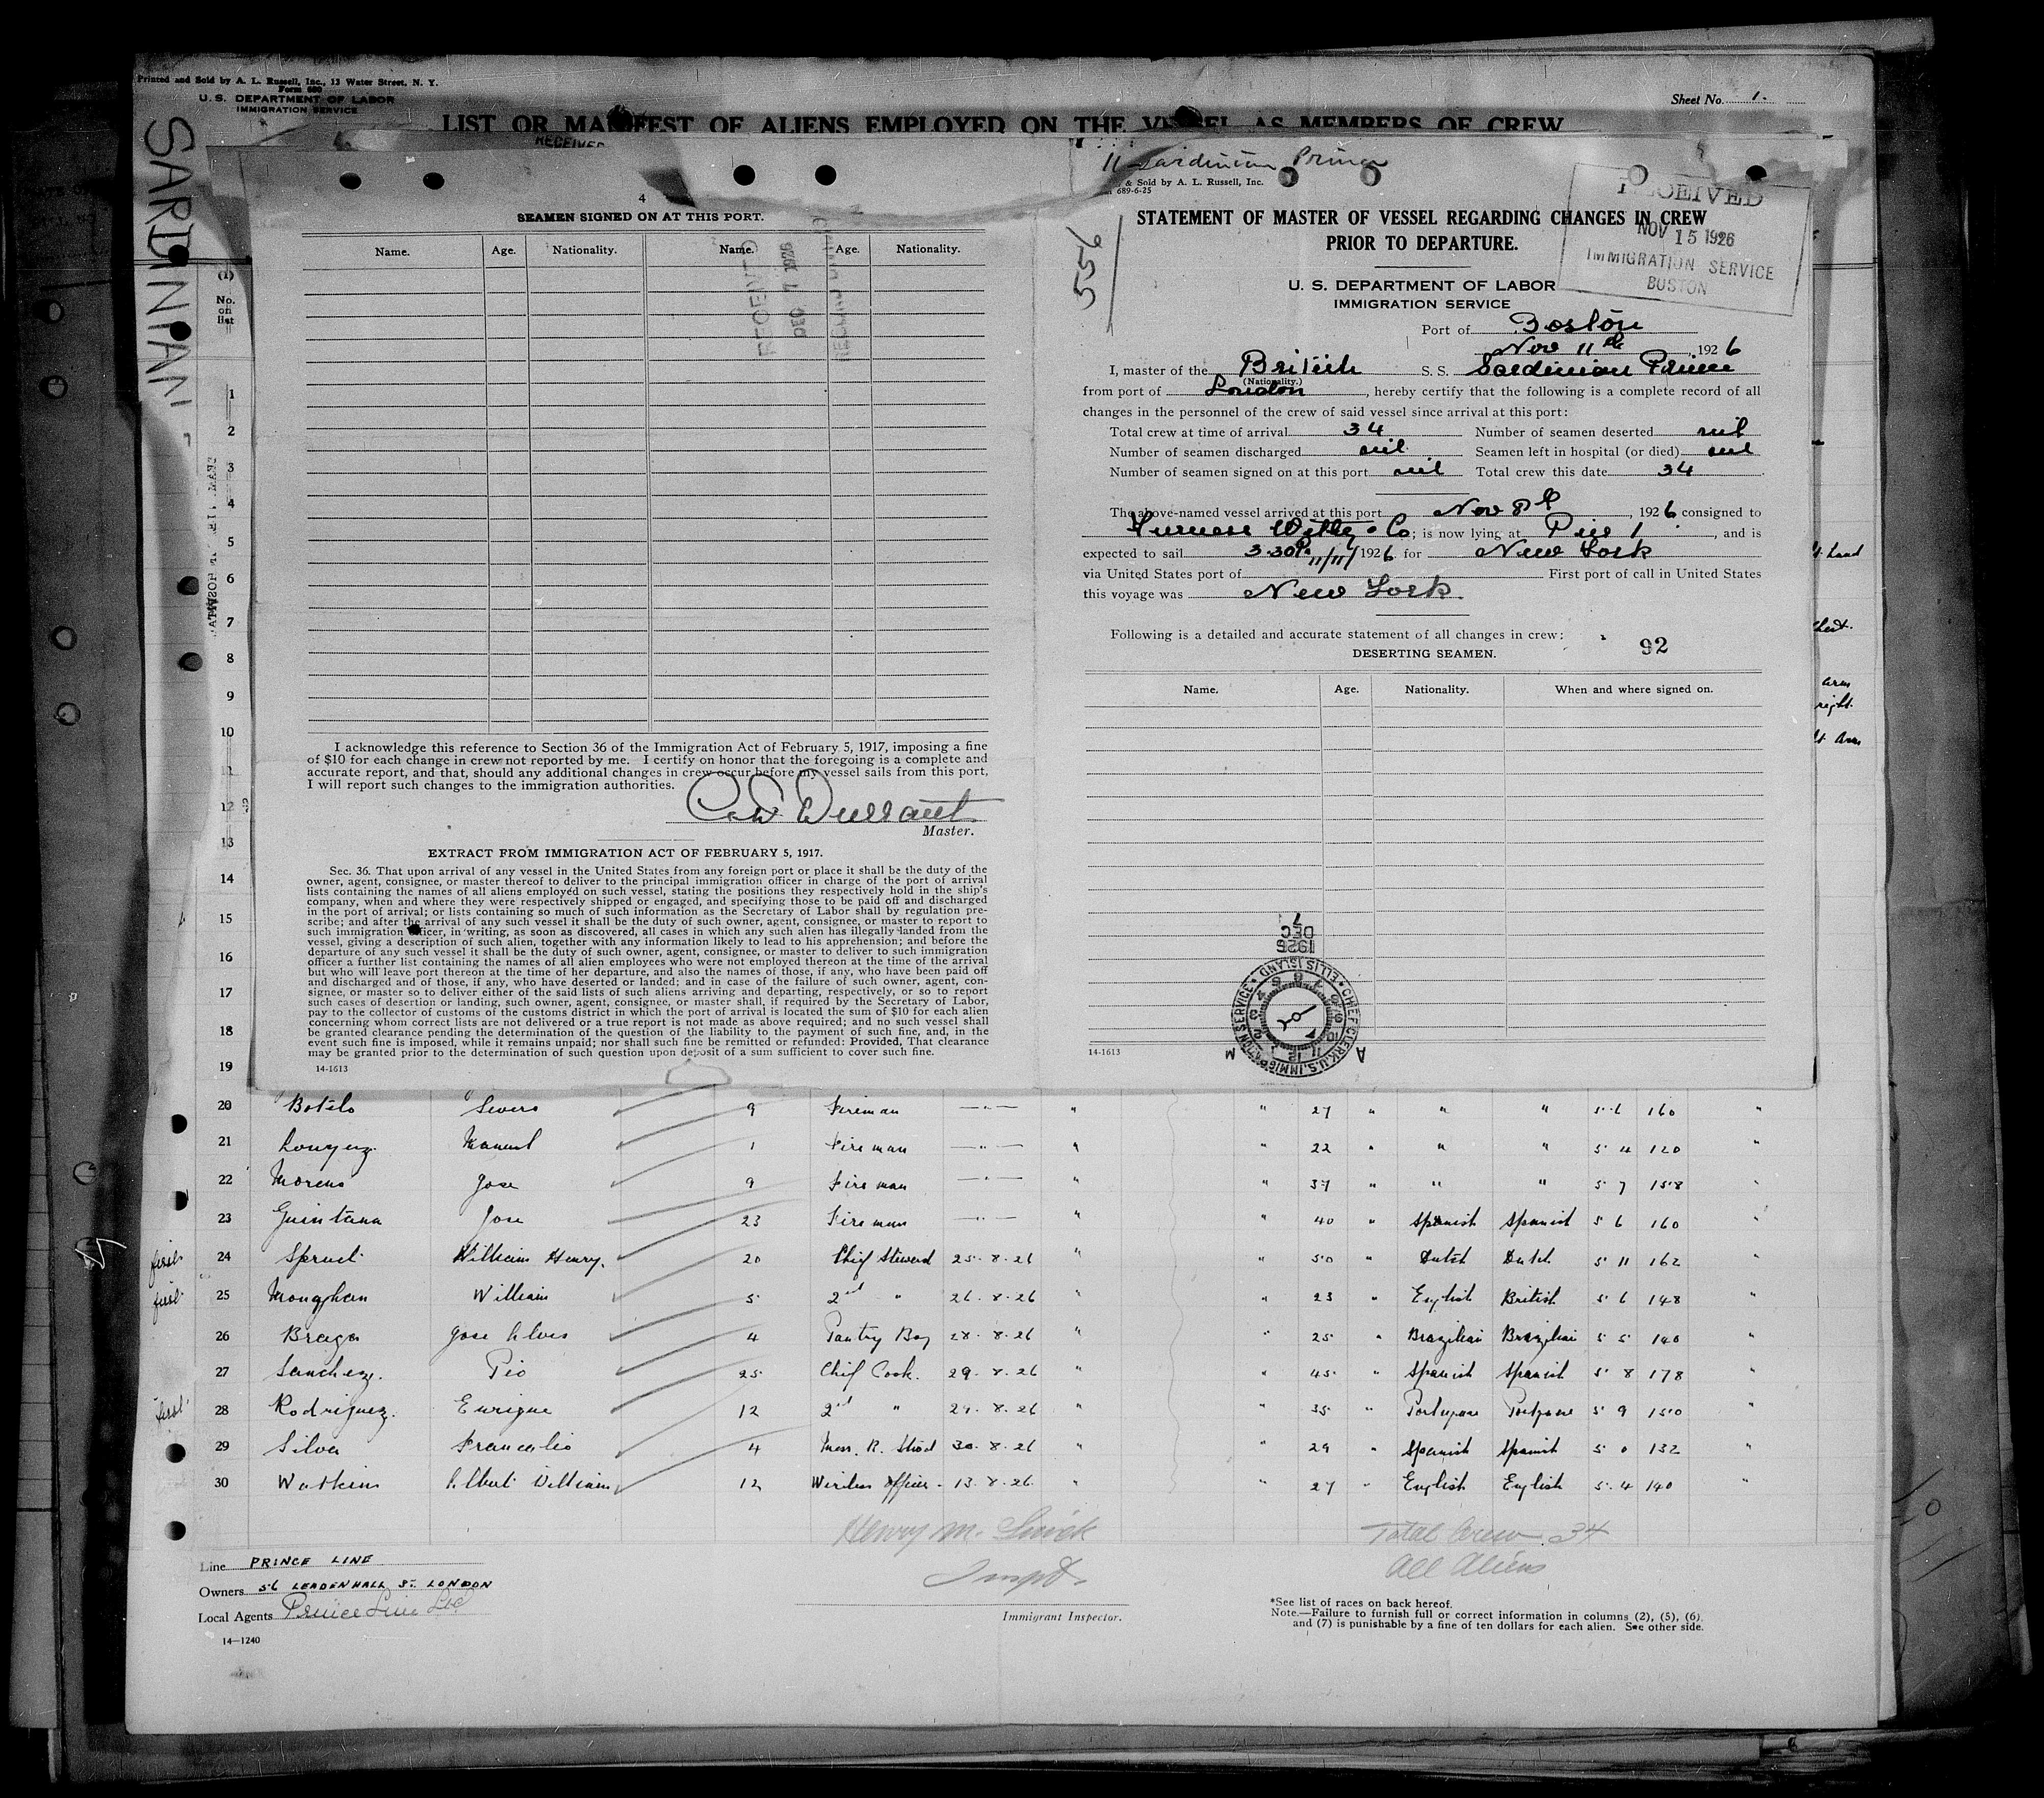 Printed and Sold by A. L. Russell, Inc., 13 Water Street, N. Y.
Form 680
U. S. DEPARTMENT OF LABOR
IMMIGRATION SERVICE
Sheet No. 1.
LIST OR MANIFEST OF ALIENS EMPLOYED ON THE VESSEL AS MEMBERS OF CREW
SARDINIAN
RECEIVED
4
SEAMEN SIGNED ON AT THIS PORT.
Name. Age. Nationality. Name. Age. Nationality.
DEC 7 1926
I acknowledge this reference to Section 36 of the Immigration Act of February 5, 1917, imposing a fine
of $10 for each change in crew not reported by me. I certify on honor that the foregoing is a complete and
accurate report, and that, should any additional changes in crew occur before my vessel sails from this port,
I will report such changes to the immigration authorities.
C.W. Durrant
Master.
EXTRACT FROM IMMIGRATION ACT OF FEBRUARY 5, 1917.
Sec. 36. That upon arrival of any vessel in the United States from any foreign port or place it shall be the duty of the
owner, agent, consignee, or master thereof to deliver to the principal immigration officer in charge of the port of arrival
lists containing the names of all aliens employed on such vessel, stating the positions they respectively hold in the ship's
company, when and where they were respectively shipped or engaged, and specifying those to be paid off and discharged
in the port of arrival; or lists containing so much of such information as the Secretary of Labor shall by regulation pre-
scribe; and after the arrival of any such vessel it shall be the duty of such owner, agent, consignee, or master to report to
such immigration officer, in writing, as soon as discovered, all cases in which any such alien has illegally landed from the
vessel, giving a description of such alien, together with any information likely to lead to his apprehension; and before the
departure of any such vessel it shall be the duty of such owner, agent, consignee, or master to deliver to such immigration
officer a further list containing the names of all alien employees who were not employed thereon at the time of the arrival
but who will leave port thereon at the time of her departure, and also the names of those, if any, who have been paid off
and discharged and of those, if any, who have deserted or landed; and in case of the failure of such owner, agent, con-
signee, or master so to deliver either of the said lists of such aliens arriving and departing, respectively, or so to report
such cases of desertion or landing, such owner, agent, consignee, or master shall, if required by the Secretary of Labor,
pay to the collector of customs of the customs district in which the port of arrival is located the sum of $10 for each alien
concerning whom correct lists are not delivered or a true report is not made as above required; and no such vessel shall
be granted clearance pending the determination of the question of the liability to the payment of such fine, and, in the
event such fine is imposed, while it remains unpaid; nor shall such fine be remitted or refunded: Provided, That clearance
may be granted prior to the determination of such question upon deposit of a sum sufficient to cover such fine.
14-1613
11 Sardinian Prince
& Sold by A. L. Russell, Inc.
689-6-25
556
RECEIVED
NOV 15 1926
IMMIGRATION SERVICE
BOSTON
STATEMENT OF MASTER OF VESSEL REGARDING CHANGES IN CREW
PRIOR TO DEPARTURE.
U. S. DEPARTMENT OF LABOR
IMMIGRATION SERVICE
Port of Boston
Nov 11th, 1926
I, master of the British S. S. Sardinian Prince
(Nationality.)
from port of London, hereby certify that the following is a complete record of all
changes in the personnel of the crew of said vessel since arrival at this port:
Total crew at time of arrival 34 Number of seamen deserted nil
Number of seamen discharged nil Seamen left in hospital (or died) nil
Number of seamen signed on at this port nil Total crew this date 34
The above-named vessel arrived at this port Nov 8th, 1926 consigned to
Furness Withy & Co; is now lying at Pier 1, and is
expected to sail 3.30P. 11/11/1926 for New York
via United States port of First port of call in United States
this voyage was New York
Following is a detailed and accurate statement of all changes in crew:
92
DESERTING SEAMEN.
Name. Age. Nationality. When and where signed on.
1926 DEC 7
CHIEF CLERK, U.S. IMMIGRATION SERVICE ELLIS ISLAND
A M
14-1613
(1)
No. on list
1
2
3
4
5
6
7
8
9
10
11
12
13
14
15
16
17
18
19
20 Botelo Severo 9 Fireman —"— " " 27 " " " 5 6 160 "
21 Manuel 1 Fireman —"— " " 22 " " " 5 4 120 "
22 Moreno Jose 9 Fireman —"— " " 37 " " " 5 7 158 "
23 Quintana Jose 23 Fireman —"— " 40 " Spanish Spanish 5 6 160 "
first 24 William Henry. 20 Chief Steward 25.8.26 " " 50 " Dutch Dutch 5 11 162 "
first 25 Monaghan William 5 2nd " 26.8.26 " " 23 " English British 5 6 148 "
26 Braga Jose Alves 4 Pantry Boy 28.8.26 " " 25 " Brazilian Brazilian 5 5 140 "
27 Sanchez. Pio 25 Chief Cook. 29.8.26 " " 45 " Spanish Spanish 5 8 178 "
first 28 Rodriguez. Enrique 12 2nd " 29.8.26 " " 35 " Portuguese Portguese 5 9 150 "
29 Silva 4 Mess. R. Stwd 30.8.26 " " 29 " Spanish Spanish 5 0 132 "
30 Watkins Albert William 12 Wireless Officer 13.8.26 " " 27 " English English 5 4 140 "
Total Crew 34
All Aliens
Line PRINCE LINE
Owners 56 LEADENHALL ST. LONDON
Local Agents Prince Line Ltd
14—1240
Henry M.
Inspt.
Immigrant Inspector.
*See list of races on back hereof.
Note.—Failure to furnish full or correct information in columns (2), (5), (6)
and (7) is punishable by a fine of ten dollars for each alien. See other side.